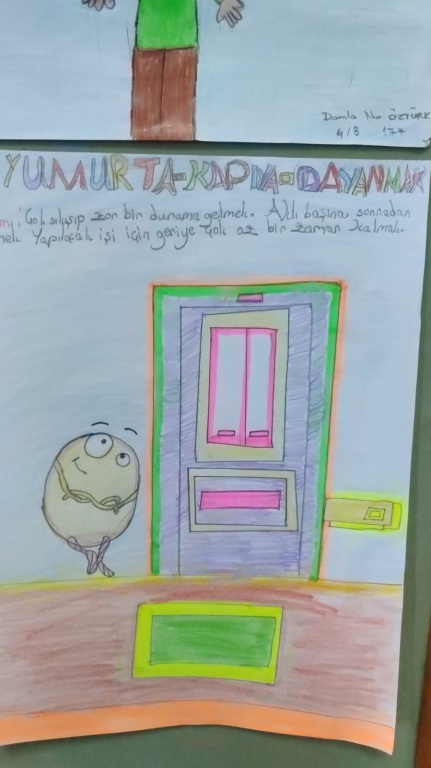 Damla Nur ÖZTÜRK
4/B 177
YUMURTA KAPIYA DAYANMAK
Çok sıkışıp zor bir duruma gelmek. Aklı başına sonradan
Yapılacak işi için geriye çok az bir zaman kalmak.